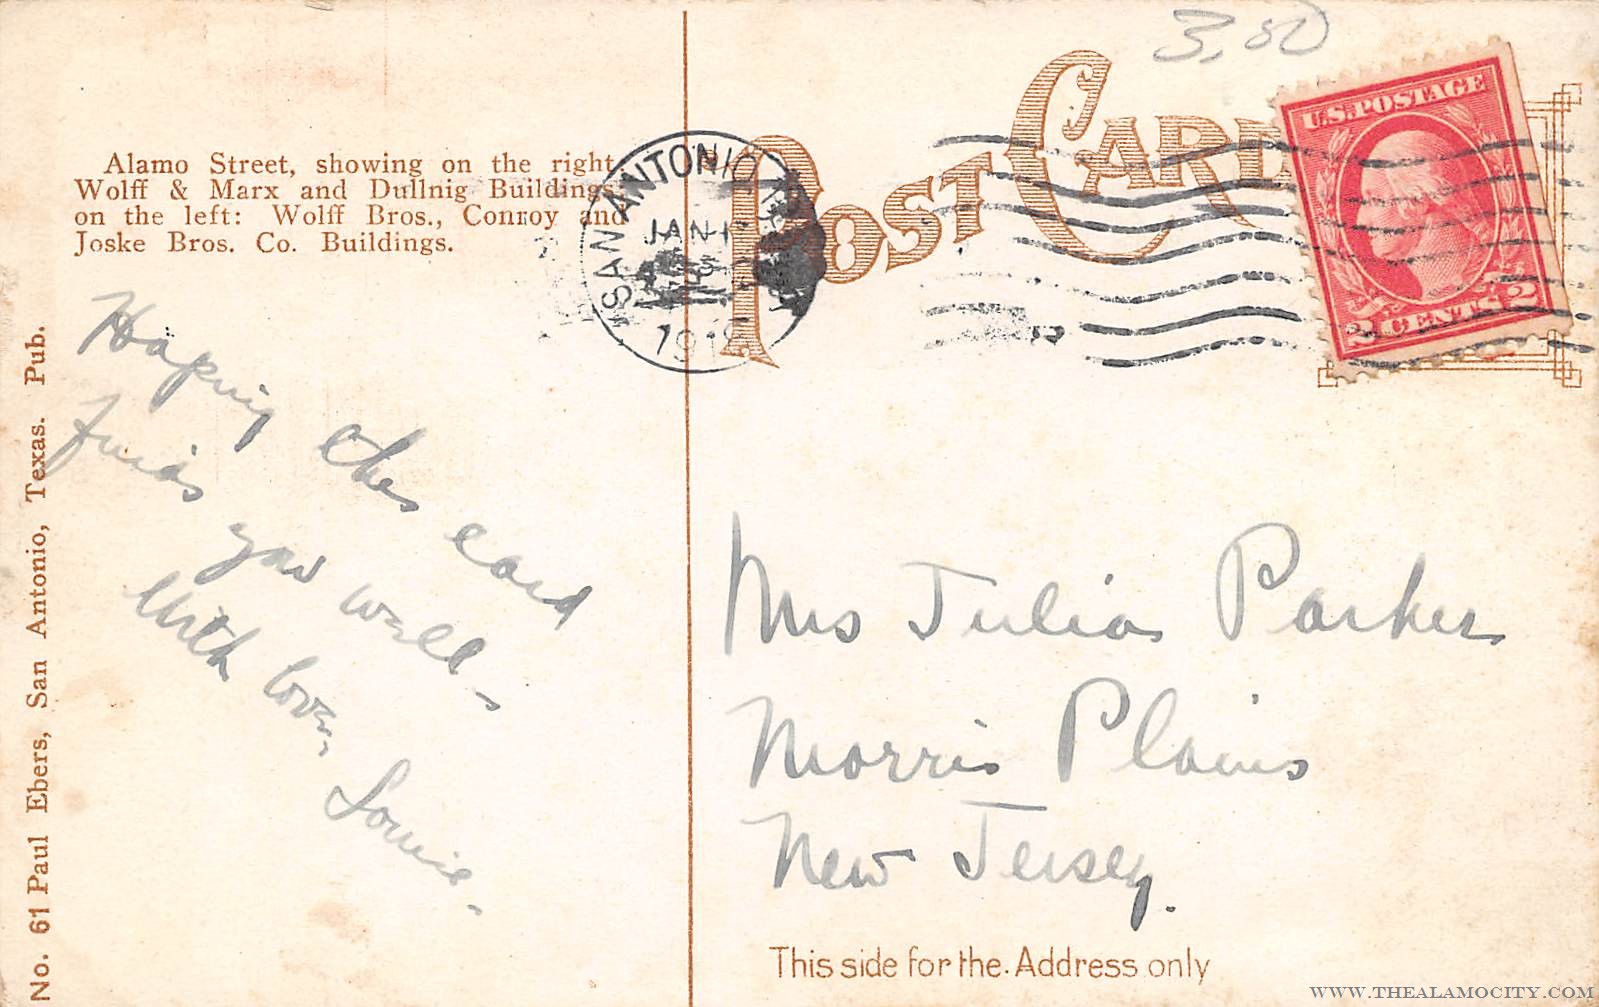 3.50
Alamo Street, showing on the right
Wolff & Marx and Dullnig Buildings;
on the left: Wolff Bros., Conroy and
Joske Bros. Co. Buildings.
SAN ANTONIO
JAN
191
POST CARD
U.S. POSTAGE
2 CENTS 2
Hoping this card
finds you well-
With love,
Louie.
No. 61 Paul Ebers, San Antonio, Texas. Pub.
Mrs Julia Parker
Morris Plains
New Jersey.
This side for the Address only
WWW.THEALAMOCITY.COM